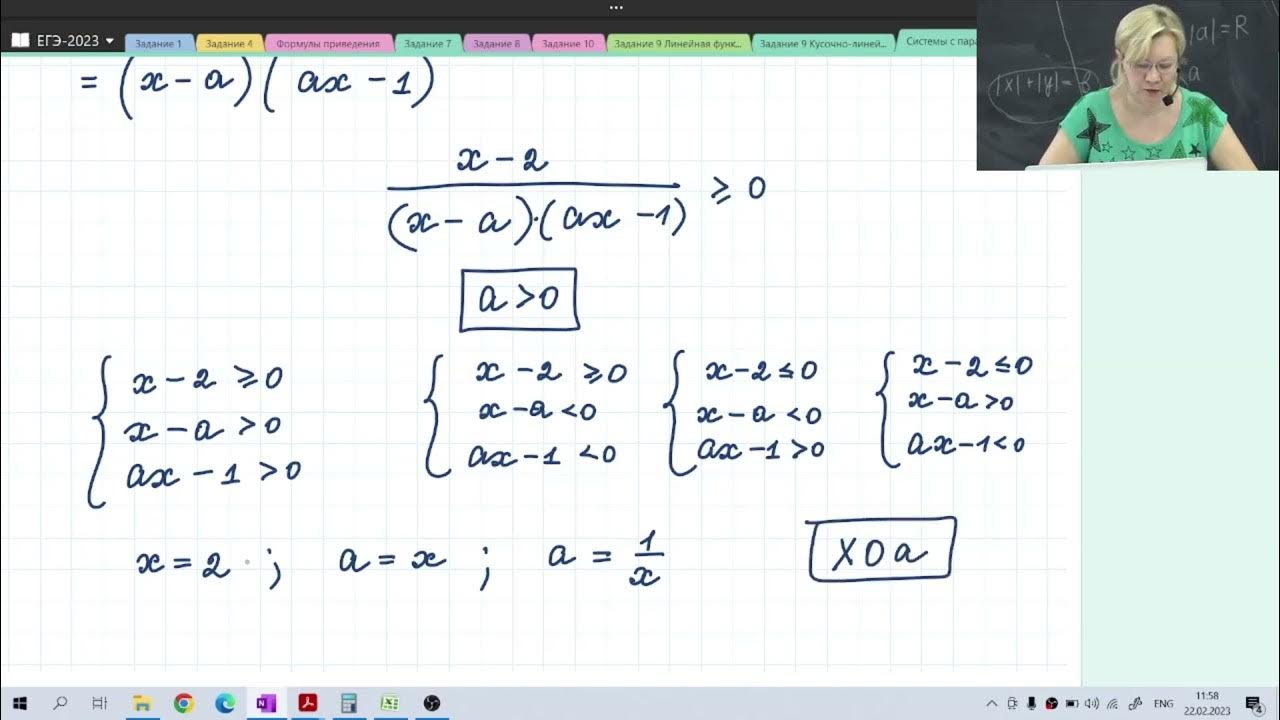 ...
ЕГЭ-2023
Задание 1
Задание 4
Формулы приведения
Задание 7
Задание 8
Задание 10
Задание 9 Линейная функ...
Задание 9 Кусочно-линей...
Системы с пара
|a|=R
|x|+|y|=
a
= (x - a)( ax - 1)
x - 2
(x - a)·(ax - 1)
≥ 0
a > 0
x - 2 ≥ 0
x - a > 0
ax - 1 > 0
x - 2 ≥ 0
x - a < 0
ax - 1 < 0
x - 2 ≤ 0
x - a < 0
ax - 1 > 0
x - 2 ≤ 0
x - a > 0
ax - 1 < 0
x = 2 ; a = x ; a = 1/x
XOa
ENG
11:58
22.02.2023
4